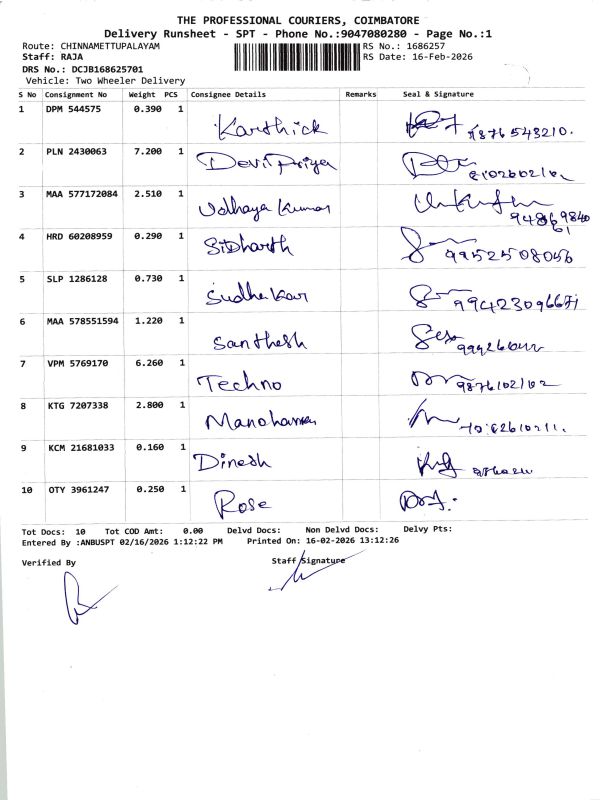 THE PROFESSIONAL COURIERS, COIMBATORE
Delivery Runsheet - SPT - Phone No.:9047080280 - Page No.:1
Route: CHINNAMETTUPALAYAM RS No.: 1686257
Staff: RAJA RS Date: 16-Feb-2026
DRS No.: DCJB168625701
Vehicle: Two Wheeler Delivery
S No Consignment No Weight PCS Consignee Details Remarks Seal & Signature
1 DPM 544575 0.390 1 Karthick 9876543210.
2 PLN 2430063 7.200 1 Devi Priya
3 MAA 577172084 2.510 1 Udhaya Kumar
4 HRD 60208959 0.290 1 SiDharth 9952508056
5 SLP 1286128 0.730 1 Sudhakar
6 MAA 578551594 1.220 1 Santhesh
7 VPM 5769170 6.260 1 Techno 9876102102
8 KTG 7207338 2.800 1
9 KCM 21681033 0.160 1 Dinesh
10 OTY 3961247 0.250 1 Rose
Tot Docs: 10 Tot COD Amt: 0.00 Delvd Docs: Non Delvd Docs: Delvy Pts:
Entered By :ANBUSPT 02/16/2026 1:12:22 PM Printed On: 16-02-2026 13:12:26
Verified By Staff Signature